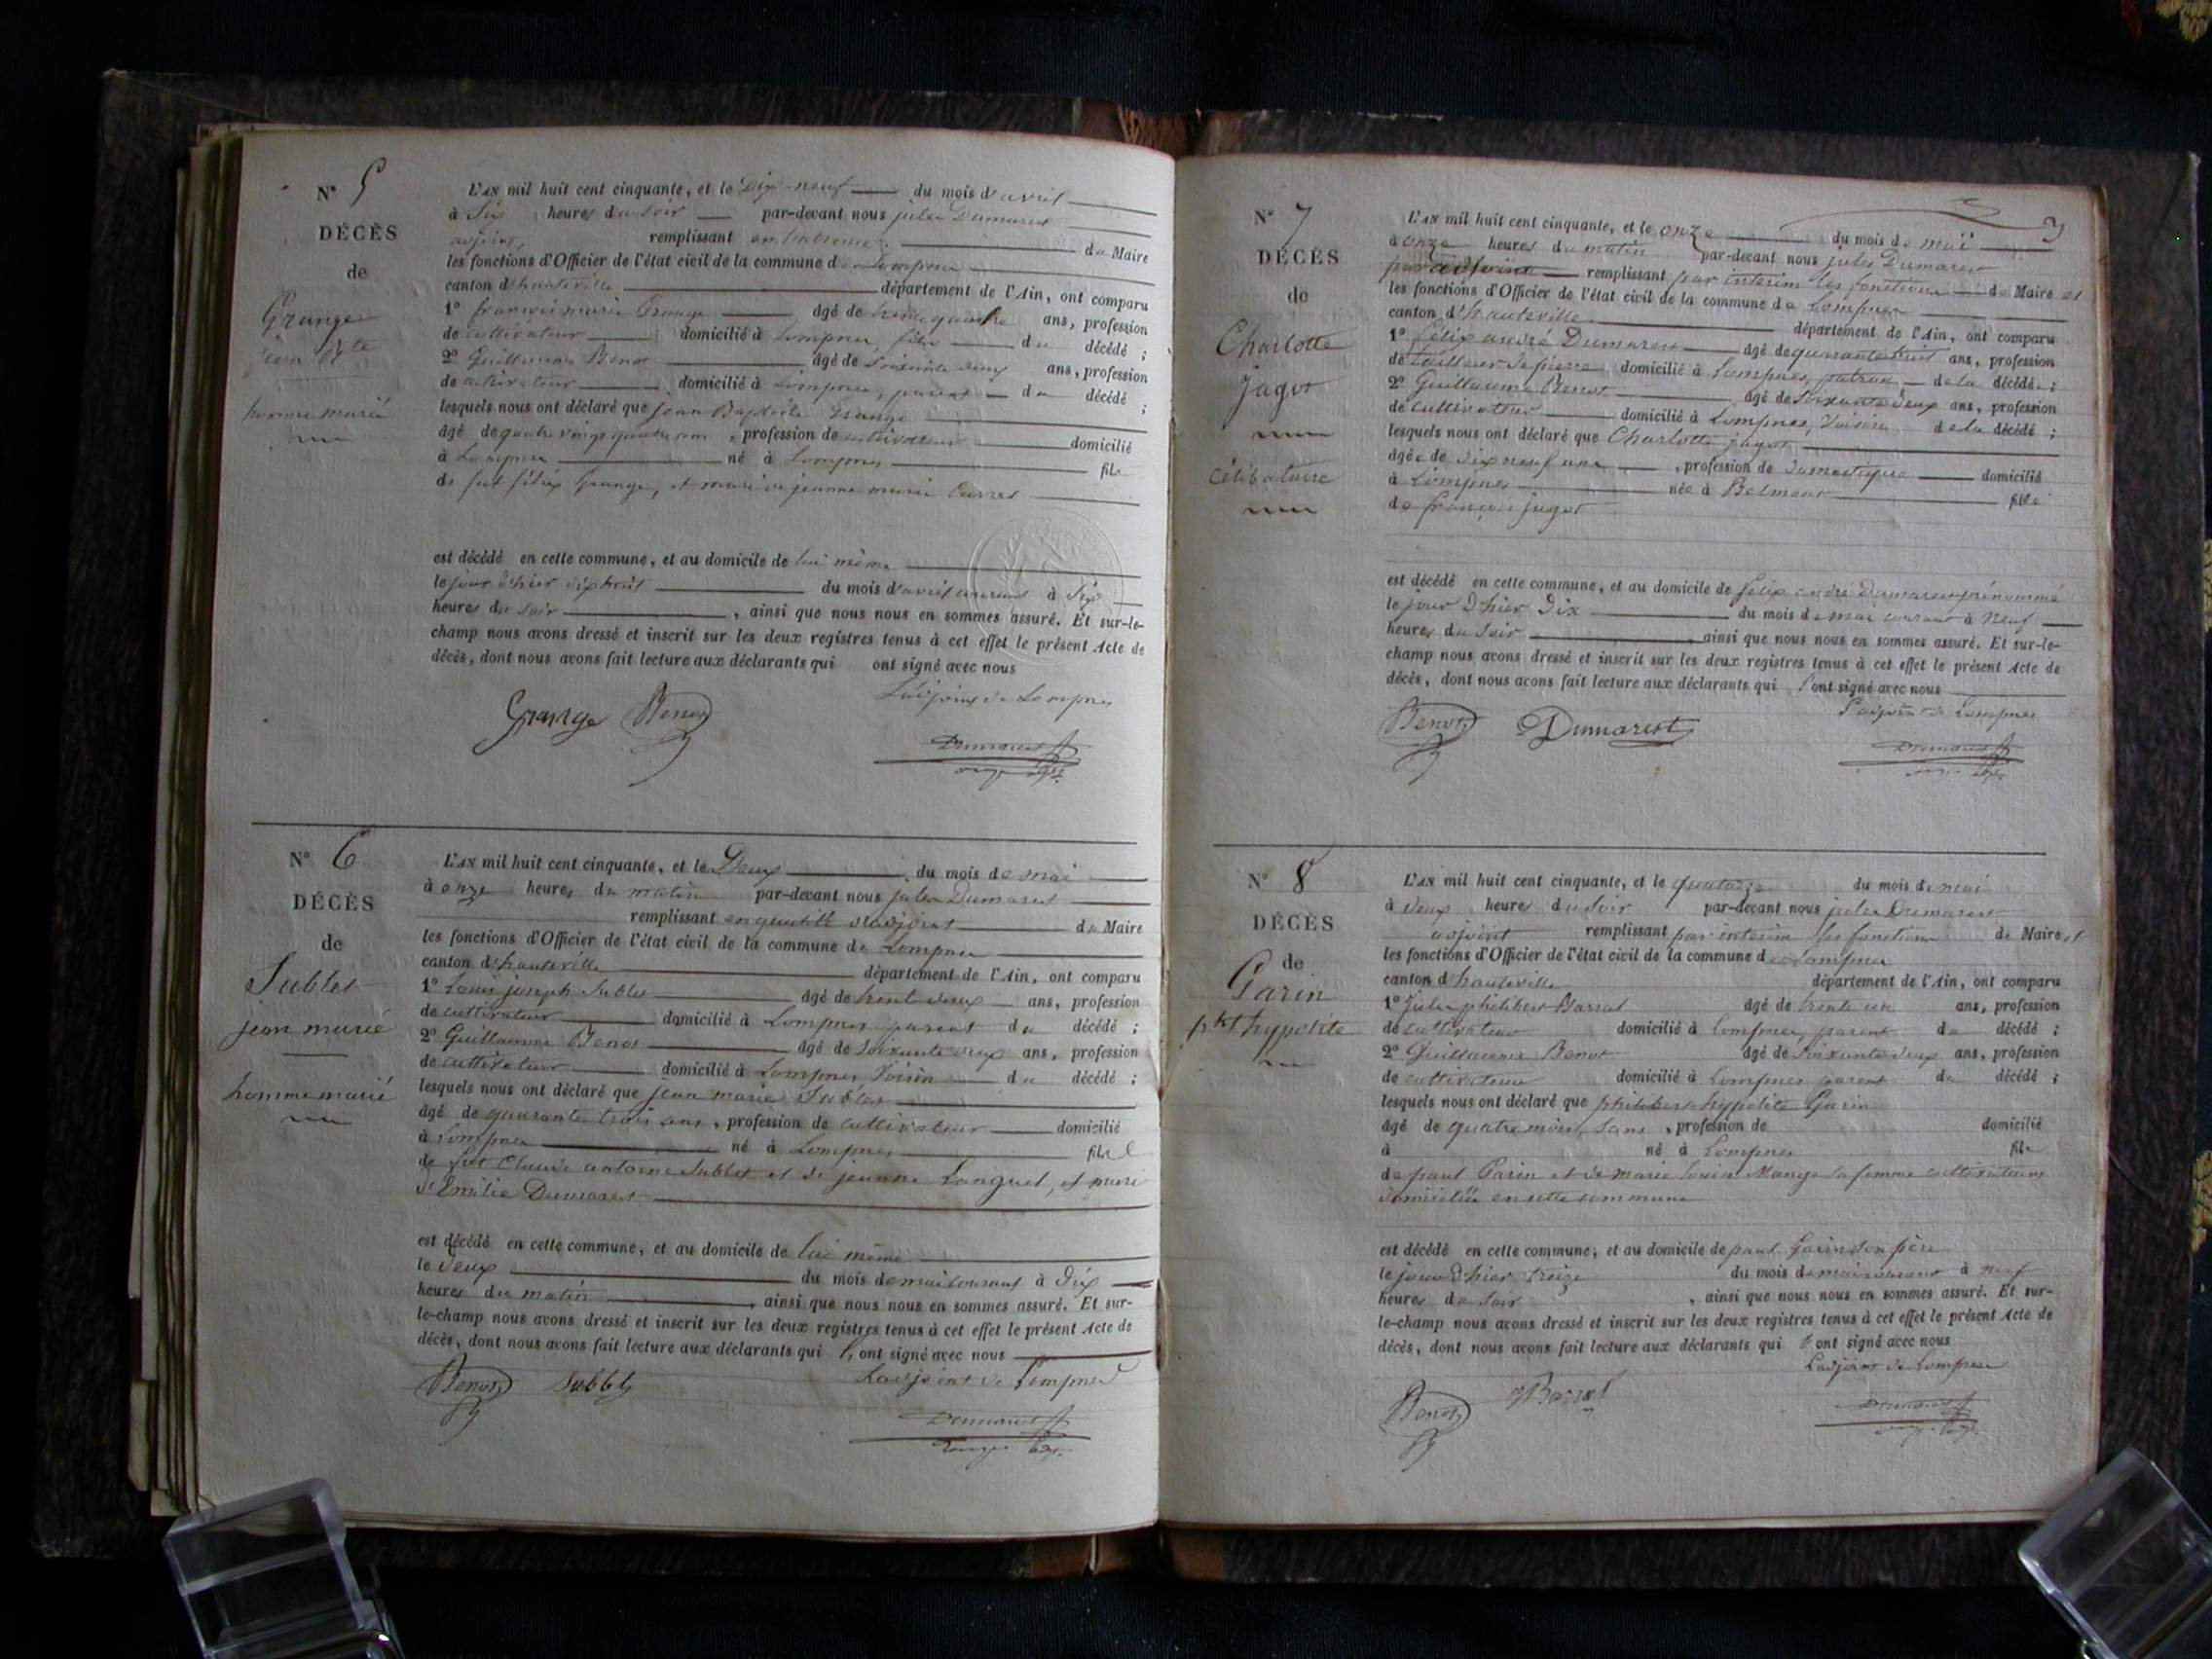 N° 5
DÉCÈS
de
Grange
jean Bte
homme marié
L'AN mil huit cent cinquante, et le Dix-neuf du mois d'avril
à Six heures du soir par-devant nous jules Dumarest
adjoint, remplissant du Maire
les fonctions d'Officier de l'état civil de la commune de Lompnes
canton d'hauteville département de l'Ain, ont comparu
1° françois marie Grange âgé de trente quatre ans, profession
de cultivateur domicilié à Lompnes, fils du décédé ;
2° Guillaume Benot âgé de Soixante deux ans, profession
de cultivateur domicilié à Lompnes, parent du décédé ;
lesquels nous ont déclaré que jean Baptiste Grange
âgé de quatre vingt quatre ans, profession de cultivateur domicilié
à Lompnes né à Lompnes fils
de fut félix Grange, et mari de jeanne marie
est décédé en cette commune, et au domicile de lui même
le jour d'hier dix huit du mois d'avril courant à Six
heures du soir, ainsi que nous nous en sommes assuré. Et sur-le-
champ nous avons dressé et inscrit sur les deux registres tenus à cet effet le présent Acte de
décès, dont nous avons fait lecture aux déclarants qui ont signé avec nous
L'adjoint de Lompnes
Grange Benot
Dumarest
N° 6
DÉCÈS
de
Sublet
jean marie
homme marié
L'AN mil huit cent cinquante, et le Deux du mois de mai
à onze heures du matin par-devant nous jules Dumarest
remplissant en qualité d'adjoint du Maire
les fonctions d'Officier de l'état civil de la commune de Lompnes
canton d'hauteville département de l'Ain, ont comparu
1° Louis joseph Sublet âgé de trent deux ans, profession
de cultivateur domicilié à Lompnes parent du décédé ;
2° Guillaume Benot âgé de soixante deux ans, profession
de cultivateur domicilié à Lompnes Voisin du décédé ;
lesquels nous ont déclaré que jean marie Sublet
âgé de quarante trois ans, profession de cultivateur domicilié
à Lompnes né à Lompnes fils
de fut Claude antoine Sublet et de jeanne Languet, et mari
d'Emilie Dumarest
est décédé en cette commune, et au domicile de lui même
le Deux du mois de mai courant à Dix
heures du matin, ainsi que nous nous en sommes assuré. Et sur-
le-champ nous avons dressé et inscrit sur les deux registres tenus à cet effet le présent Acte de
décès, dont nous avons fait lecture aux déclarants qui ont signé avec nous
Benot Sublet L'adjoint de Lompnes
Dumarest
3
N° 7
DÉCÈS
de
Charlotte
jagot
célibataire
L'AN mil huit cent cinquante, et le onze du mois de mai
à onze heures du matin par-devant nous jules Dumarest
remplissant par interim les fonctions de Maire et
les fonctions d'Officier de l'état civil de la commune de Lompnes
canton d'hauteville département de l'Ain, ont comparu
1° félix andré Dumarest âgé de quarante huit ans, profession
de tailleur de pierre domicilié à Lompnes, patron de la décédée ;
2° Guillaume Benot âgé de Soixante deux ans, profession
de cultivateur domicilié à Lompnes, Voisin de la décédé ;
lesquels nous ont déclaré que Charlotte jagot
âgée de dix neuf ans, profession de domestique domicilié
à Lompnes née à Belmont fille
de françois jagot
est décédé en cette commune, et au domicile de félix andré Dumarest prénommé
le jour d'hier Dix du mois de mai courant à Neuf
heures du Soir, ainsi que nous nous en sommes assuré. Et sur-le-
champ nous avons dressé et inscrit sur les deux registres tenus à cet effet le présent Acte de
décès, dont nous avons fait lecture aux déclarants qui ont signé avec nous
L'adjoint de Lompnes
Benot Dumarest
Dumarest
N° 8
DÉCÈS
de
Garin
phbt hypolite
L'AN mil huit cent cinquante, et le quatorze du mois de mai
à deux heures du soir par-devant nous jules Dumarest
adjoint remplissant par interim les fonctions de Maire et
les fonctions d'Officier de l'état civil de la commune de Lompnes
canton d'hauteville département de l'Ain, ont comparu
1° Jules philibert Barrat âgé de trente un ans, profession
de cultivateur domicilié à Lompnes, parent du décédé ;
2° Guillaume Benot âgé de Soixante deux ans, profession
de cultivateur domicilié à Lompnes parent du décédé ;
lesquels nous ont déclaré que philibert hypolite Garin
âgé de quatre mois, sans, profession de domicilié
à né à Lompnes fils
de paul Garin et de marie louise Mange sa femme cultivateurs
domiciliés en cette commune
est décédé en cette commune, et au domicile de paul Garin son père
le jour d'hier treize du mois de mai courant à neuf
heures du soir, ainsi que nous nous en sommes assuré. Et sur-
le-champ nous avons dressé et inscrit sur les deux registres tenus à cet effet le présent Acte de
décès, dont nous avons fait lecture aux déclarants qui ont signé avec nous
L'adjoint de Lompnes
Benot Barrat
Dumarest